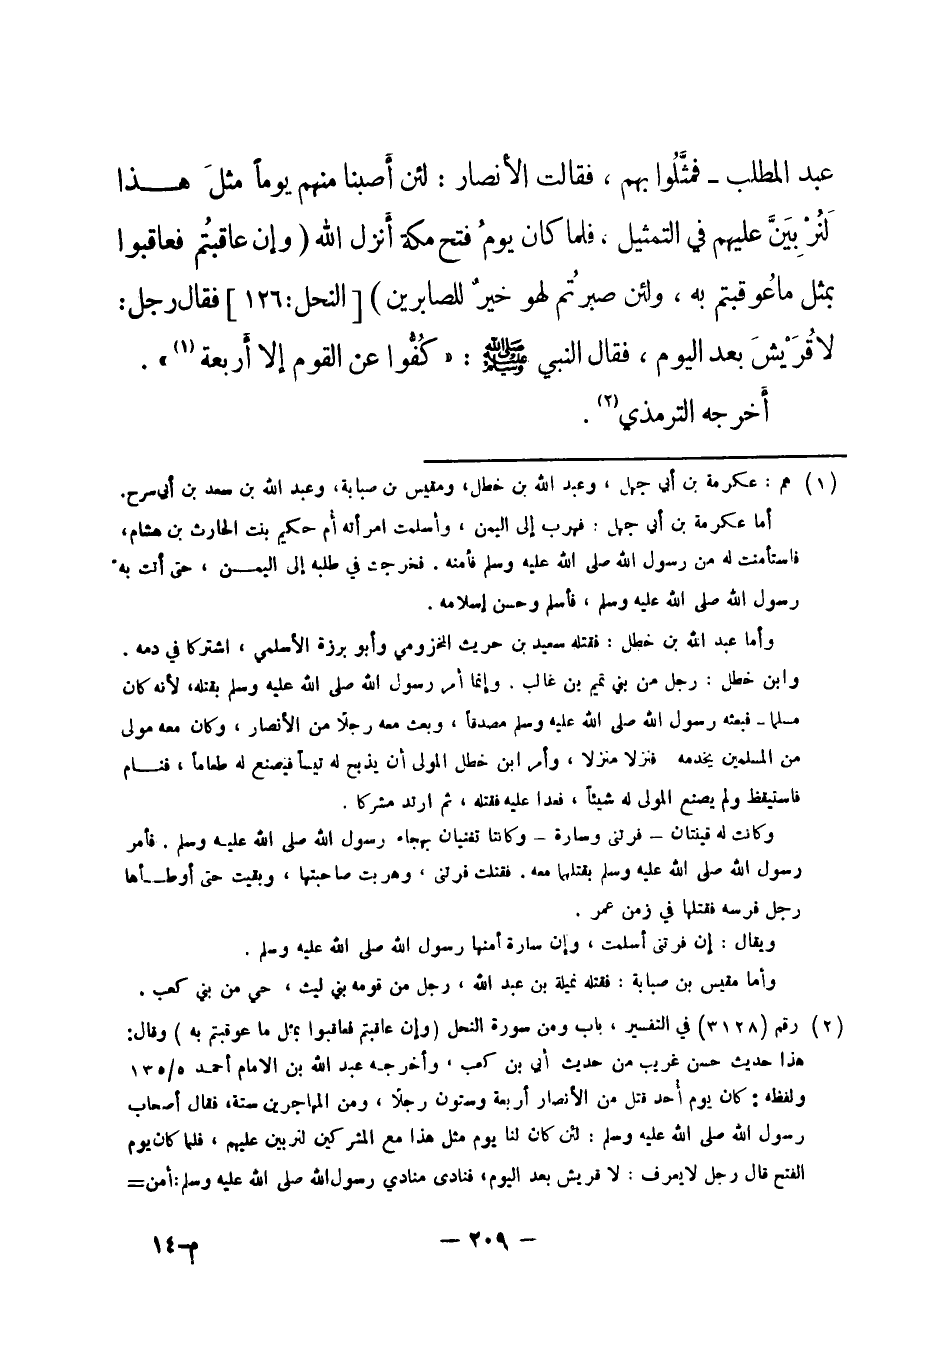 عبد المطلب ـ فمثَّلُوا بهم ، فقالت الأنصار : لئن أَصبنا منهم يوماً مثلَ هـــذا
لَنُرْبِيَنَّ عليهم في التمثيل ، فلما كان يومُ فتح مكة أَنزل الله ( وإن عاقبتُم فعاقبوا
بمثل ماعُوقبتم به ، ولئن صبرتُم لهو خيرٌ للصابرين ) [ النحل : ١٢٦ ] فقال رجل :
لا قُرَيْشَ بعد اليوم ، فقال النبي ﷺ : « كُفُّوا عن القوم إلا أَربعة (١) » .
أَخرجه الترمذي (٢) .
(١) هم : عكرمة بن أبي جهل ، وعبد الله بن خطل، ومقيس بن صبابة، وعبد الله بن سعد بن أبي سرح.
أما عكرمة بن أبي جهل : فهرب إلى اليمن ، وأسلمت امرأته أم حكيم بنت الحارث بن هشام،
فاستأمنت له من رسول الله صلى الله عليه وسلم فأمنه . فخرجت في طلبه إلى اليمـــن ، حتى أتت به
رسول الله صلى الله عليه وسلم ، فأسلم وحسن إسلامه .
وأما عبد الله بن خطل : فقتله سعيد بن حريث المخزومي وأبو برزة الأسلمي ، اشتركا في دمه .
وابن خطل : رجل من بني تميم بن غالب . وإنما أمر رسول الله صلى الله عليه وسلم بقتله، لأنه كان
مسلما ـ فبعثه رسول الله صلى الله عليه وسلم مصدقاً ، وبعث معه رجلًا من الأنصار ، وكان معه مولى
من المسلمين يخدمه فنزلا منزلا ، وأمر ابن خطل المولى أن يذبح له تيساً فيصنع له طعاماً ، فنـــام
فاستيقظ ولم يصنع المولى له شيئاً ، فعدا عليه فقتله ، ثم ارتد مشركا .
وكانت له قينتان – فرتنى وسارة – وكانتا تغنيان بهجاء رسول الله صلى الله عليـه وسلم . فأمر
رسول الله صلى الله عليه وسلم بقتلهما معه . فقتلت فرتنى ، وهربت صاحبتها ، وبقيت حتى أوطـــأها
رجل فرسه فقتلها في زمن عمر .
ويقال : إن فرتنى أسلمت ، وإن سارة أمنها رسول الله صلى الله عليه وسلم .
وأما مقيس بن صبابة : فقتله نميلة بن عبد الله ، رجل من قومه بني ليث ، حي من بني كعب .
(٢) رقم (٣١٢٨) في التفسير ، باب ومن سورة النحل (وإن عاقبتم فعاقبوا بمثل ما عوقبتم به ) وقال:
هذا حديث حسن غريب من حديث أبي بن كعب ، وأخرجـه عبد الله بن الامام أحمـد ١٣٥/٥
ولفظه : كان يوم أُحد قتل من الأنصار أربعة وستون رجلًا ، ومن المهاجرين ستة، فقال أصحاب
رسول الله صلى الله عليه وسلم : لئن كان لنا يوم مثل هذا مع المشركين لنربين عليهم ، فلما كان يوم
الفتح قال رجل لايعرف : لا قريش بعد اليوم، فنادى منادي رسول الله صلى الله عليه وسلم : أمن=
– ٢٠٩ –
م-١٤